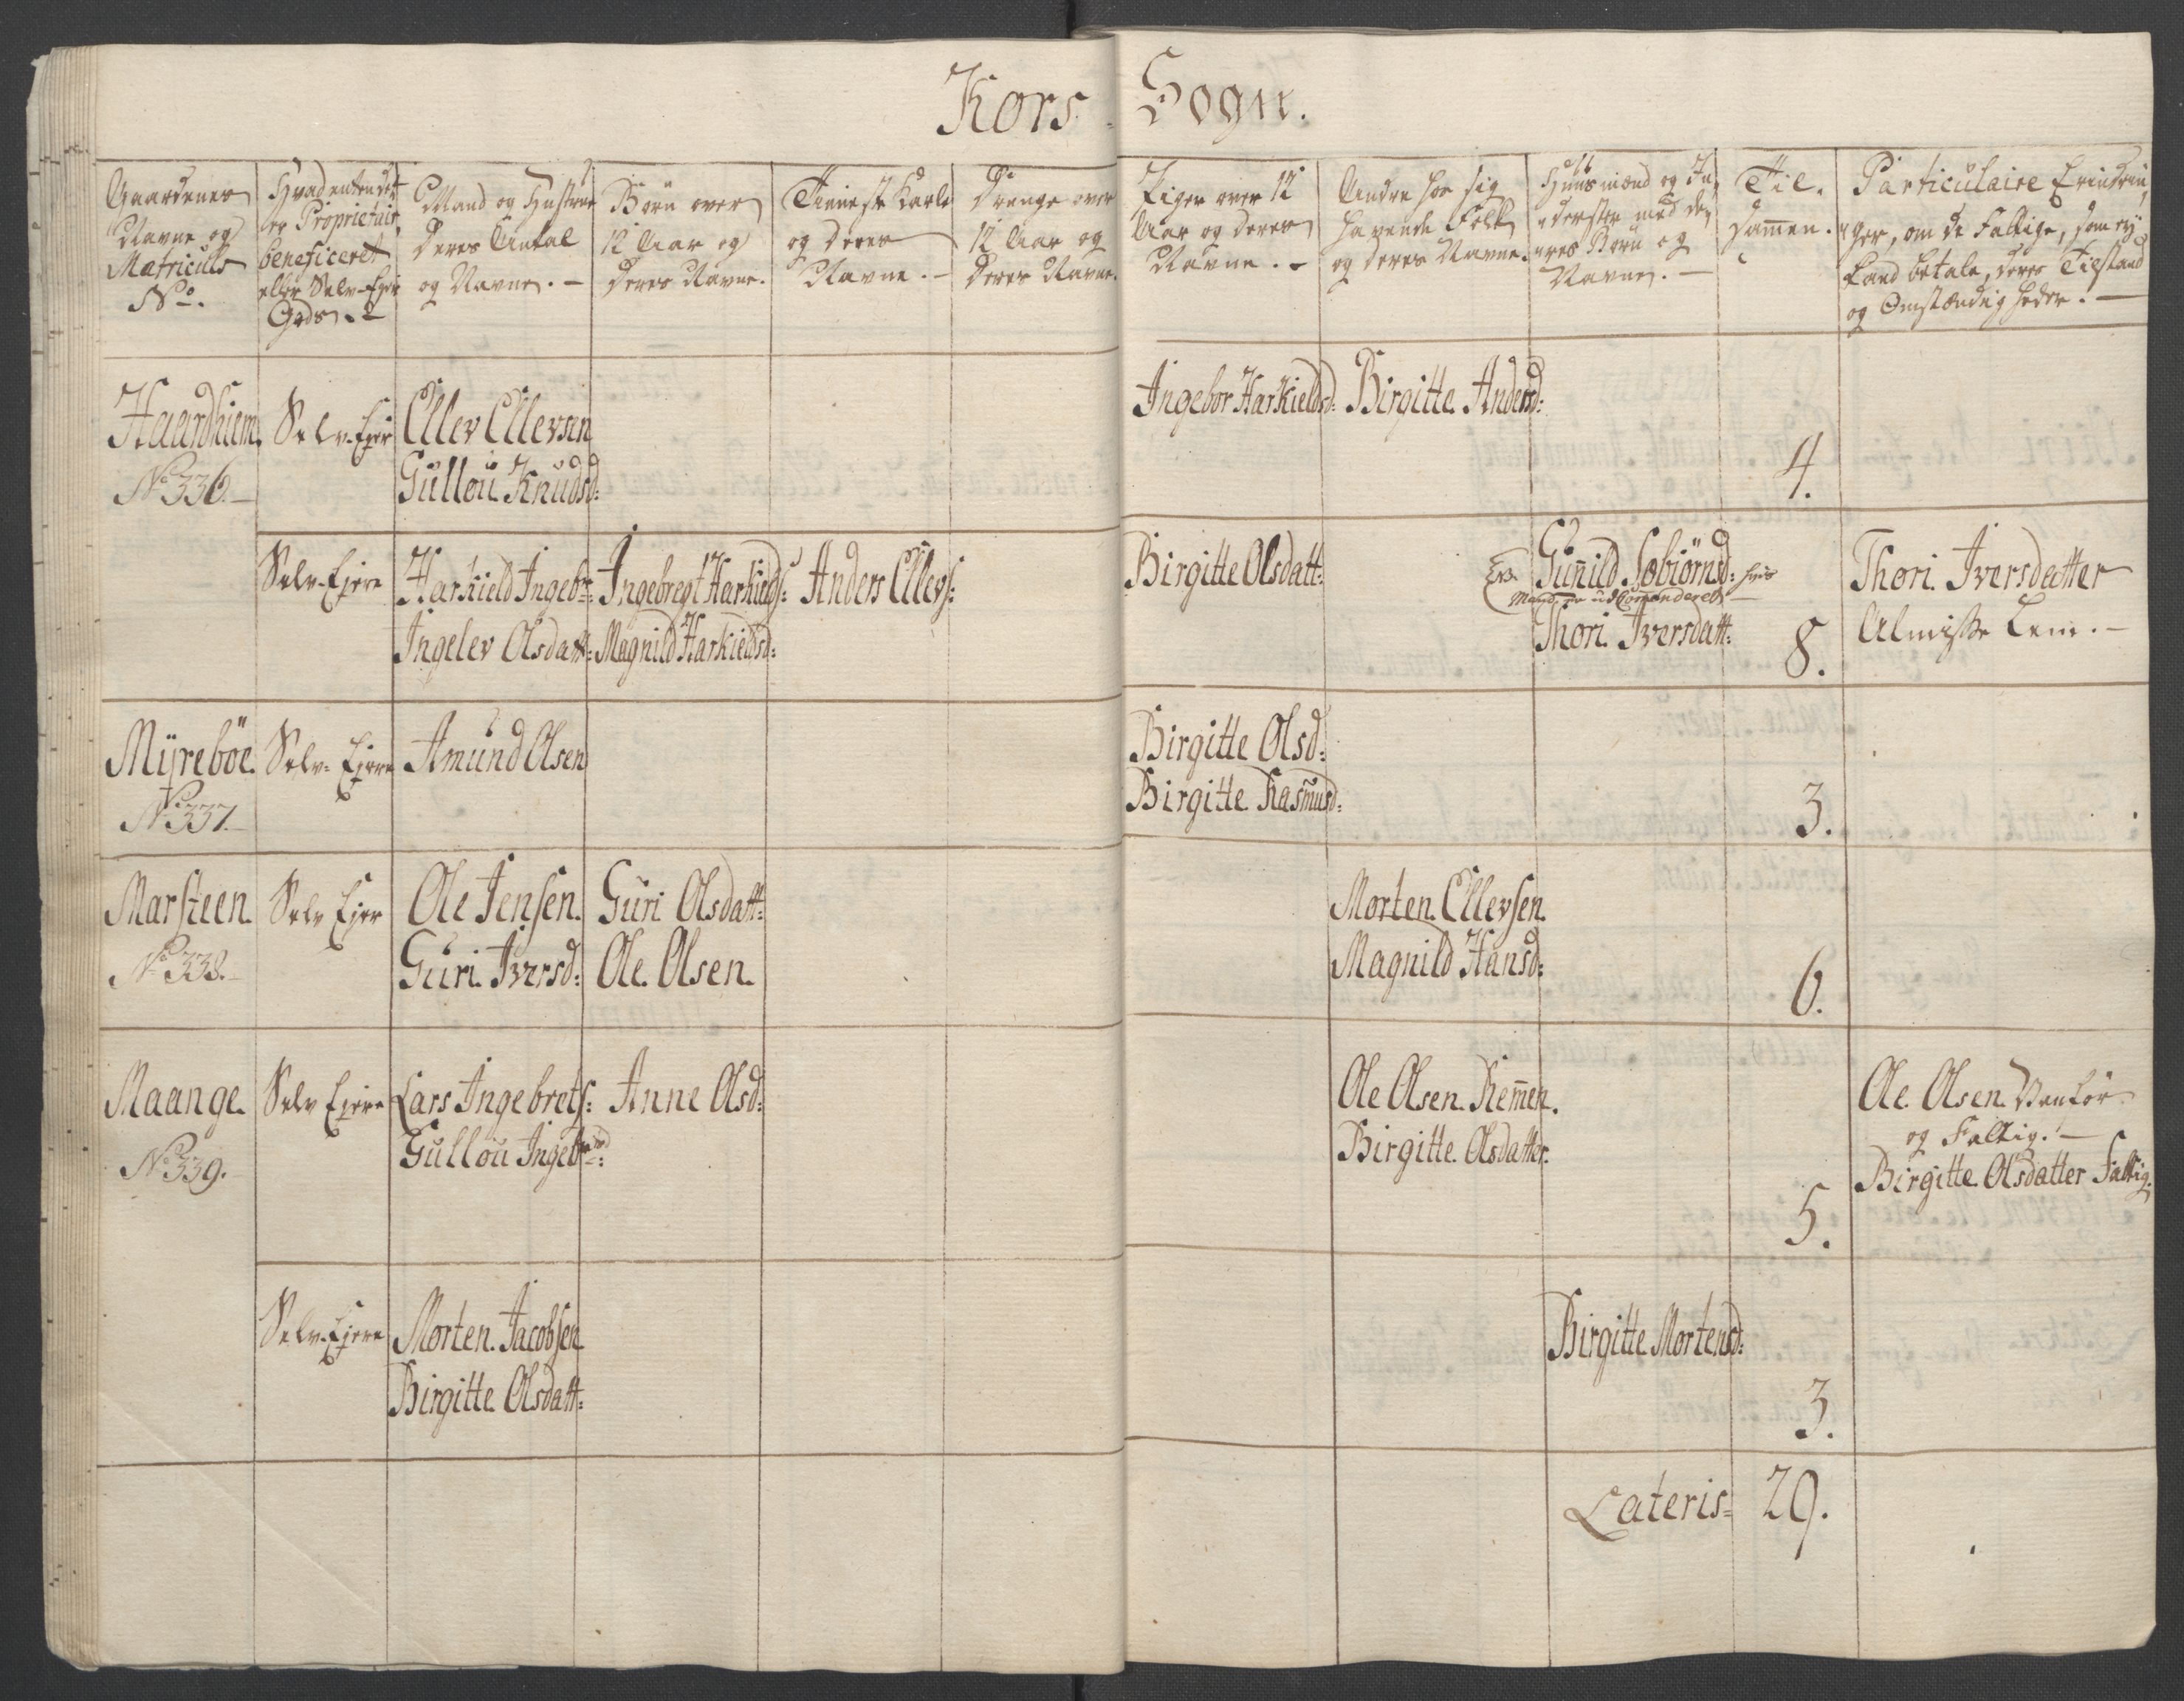 Kors Sogn.
Gaardenes
Navne og
Matriculs
No.
Hvad enten det
er Proprietair,
beneficeret
eller Selv-Ejer
Gods.
Mand og Hustrue
Deres Antal
og Navne. -
Børn over
12 Aar og
Deres Navne.
Tienneste Karle
og Deres
Navne. -
Drenge over
12 Aar og
Deres Navne.
Piger over 12
Aar og Deres
Navne. -
Andre hos sig
havende Folk
og Deres Navne.
Huusmænd og In-
derster med De-
res Børn og
Navne. -
Til-
sam̄en.
Particulaire Erindrin-
ger, om de Fattige, som ey
kand betale, Deres Tilstand
og Omstændigheder. -
Haardhiem.
No 336.
Selv-Ejer
Ellev Ellevsen
Gullou Knudsd:
Ingebor Harkieldsd:
Birgitte Andersd:
4.
Selv-Ejere
Harkield Ingebr:
Ingelev Olsdatt:
Ingebregt Harkields:
Magnild Harkieldsd:
Anders Ellevs:
Birgitte Olsdatt:
Gunild Sobiørnsd: hvis
Mand er udCom̄anderet
Thori Iversdatt:
8.
Thori Iversdatter
Almisse Lem. -
Mÿrebøe.
No 337.
Selv-Ejere
Amund Olsen
Birgitte Olsd:
Birgitte Rasmusd:
3.
Marsteen.
No 338.
Selv Ejer
Ole Jensen.
Guri Iversd:
Guri Olsdatt:
Ole Olsen.
Morten Ellevsen.
Magnild Hansd:
6.
Maange.
No 339.
Selv Ejere
Lars Ingebrets:
Gullou Ingebr:
Anne Olsd:
Ole Olsen Rem̄en.
Birgitte Olsdatter.
5.
Ole Olsen Vanfør
og Fattig. -
Birgitte Olsdatter Fattig.
Selv-Ejere
Morten Jacobsen
Birgitte Olsdatt:
Birgitte Mortensd:
3.
Lateris= 29.